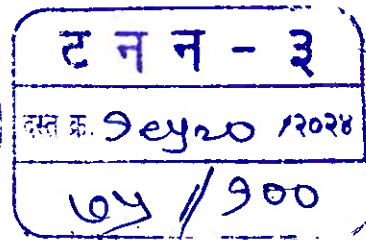 ट न न - ३
दस्त क्र. १९५२० /२०२४
७५ / १००